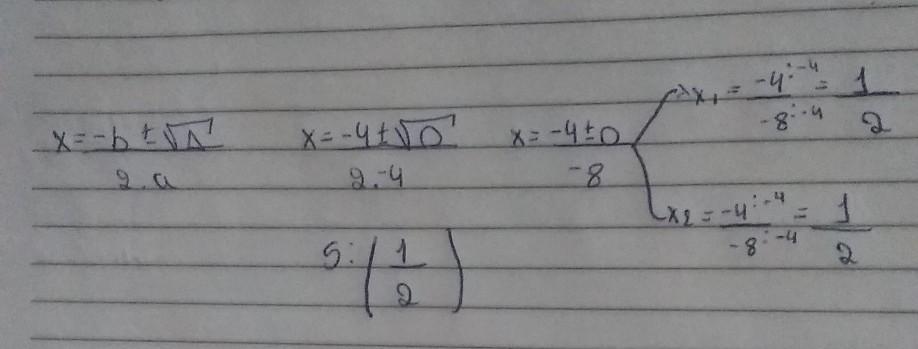 x = -b ± √Δ / 2.a   x = -4 ± √0 / 2.-4   x = -4 ± 0 / -8
x₁ = -4 : -4 / -8 : -4 = 1 / 2
x2 = -4 : -4 / -8 : -4 = 1 / 2
S: ( 1 / 2 )